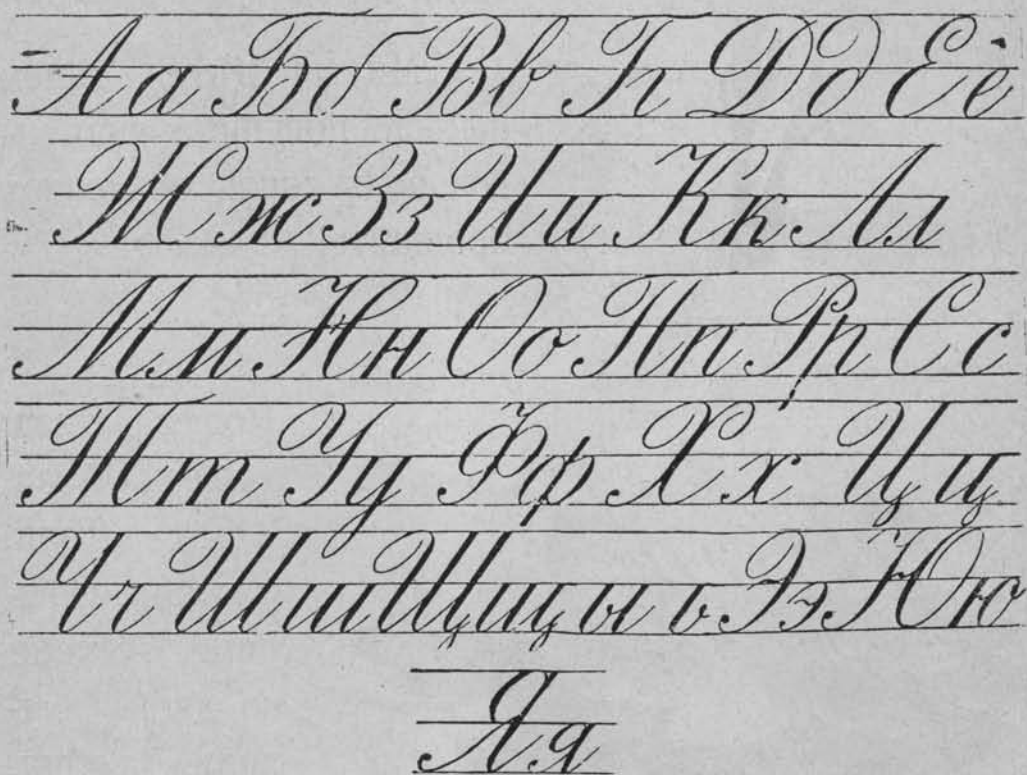 Аа Бб Вв Гг Дд Ее
Жж Зз Ии Кк Лл
Мм Нн Оо Пп Рр Сс
Тт Уу Фф Хх Цц
Чч Шш Щщ ы ь Ээ Юю
Яя